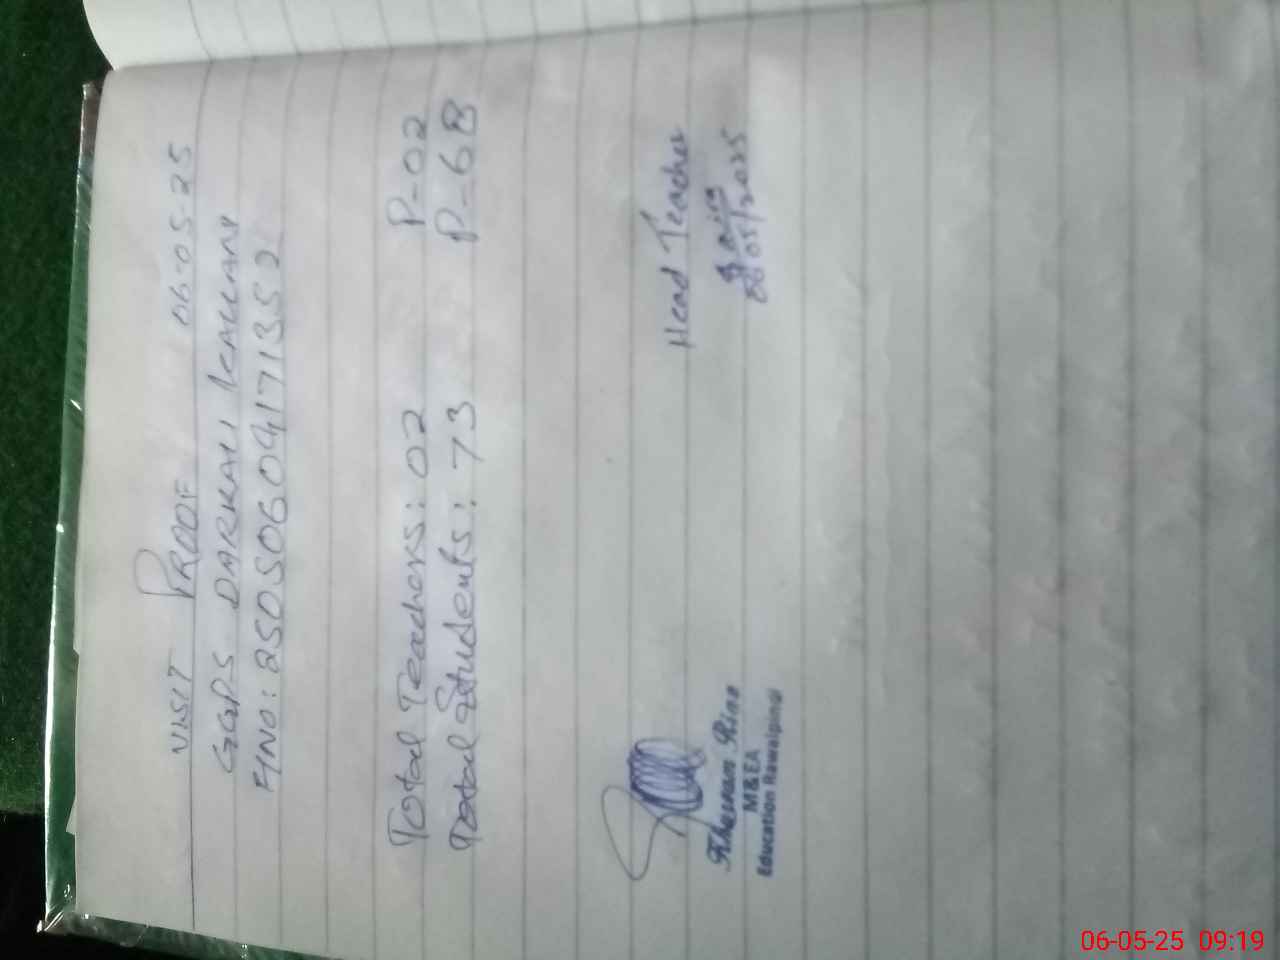 VISIT PROOF 06-05-25
GGPS DARKALI KALLAN
FNO: 25050609171352
Total Teachers: 02 P-02
Total Students: 73 P-68
Head Teacher
06/05/2025
M&EA
Education Rawalpindi
06-05-25 09:19